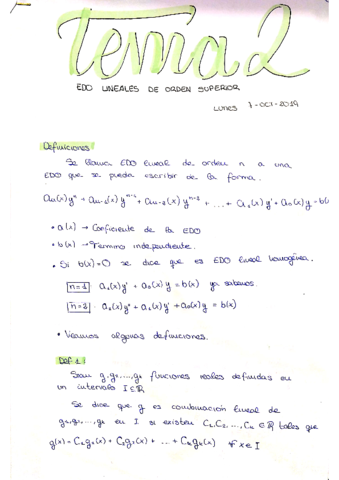 Tema 2
EDO LINEALES DE ORDEN SUPERIOR
Lunes 7-OCT-2019
Definiciones
Se llama EDO lineal de orden n a una
EDO que se pueda escribir de la forma.
aₙ(x)yⁿ + aₙ₋₁(x)yⁿ⁻¹ + aₙ₋₂(x)yⁿ⁻² + ... + a₁(x)y' + a₀(x)y = b(
• a(x) → Coeficiente de la EDO
• b(x) → Termino independiente.
• Si b(x)=0 se dice que es EDO lineal homogénea.
n=1 a₁(x)y' + a₀(x)y = b(x) ya sabemos.
n=2 a₂(x)y'' + a₁(x)y' + a₀(x)y = b(x)
• Veamos algunas definiciones.
Def 1:
Sean g, g₁, ..., gₖ funciones reales definidas en
un intervalo I⊆ℝ
Se dice que g es combinación lineal de
g₁, g₂, ..., gₖ en I si existen C₁, C₂, ..., Cₖ ∈ ℝ tales que
g(x) = C₁g₁(x) + C₂g₂(x) + ... + Cₖgₖ(x) ∀x∈I